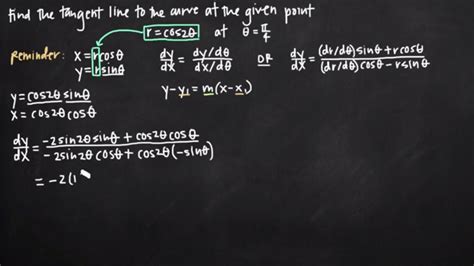 find the tangent line to the curve at the given point
r = cos2θ at θ = π/4
Reminder: x = rcosθ dy/dx = (dy/dθ)/(dx/dθ) OR dy/dx = ((dr/dθ)sinθ + rcosθ)/((dr/dθ)cosθ − rsinθ)
y = rsinθ
y = cos2θ sinθ y − y₁ = m(x − x₁)
x = cos2θ cosθ
dy/dx = (−2sin2θ sinθ + cos2θ cosθ)/(−2sin2θ cosθ + cos2θ(−sinθ))
= −2(1